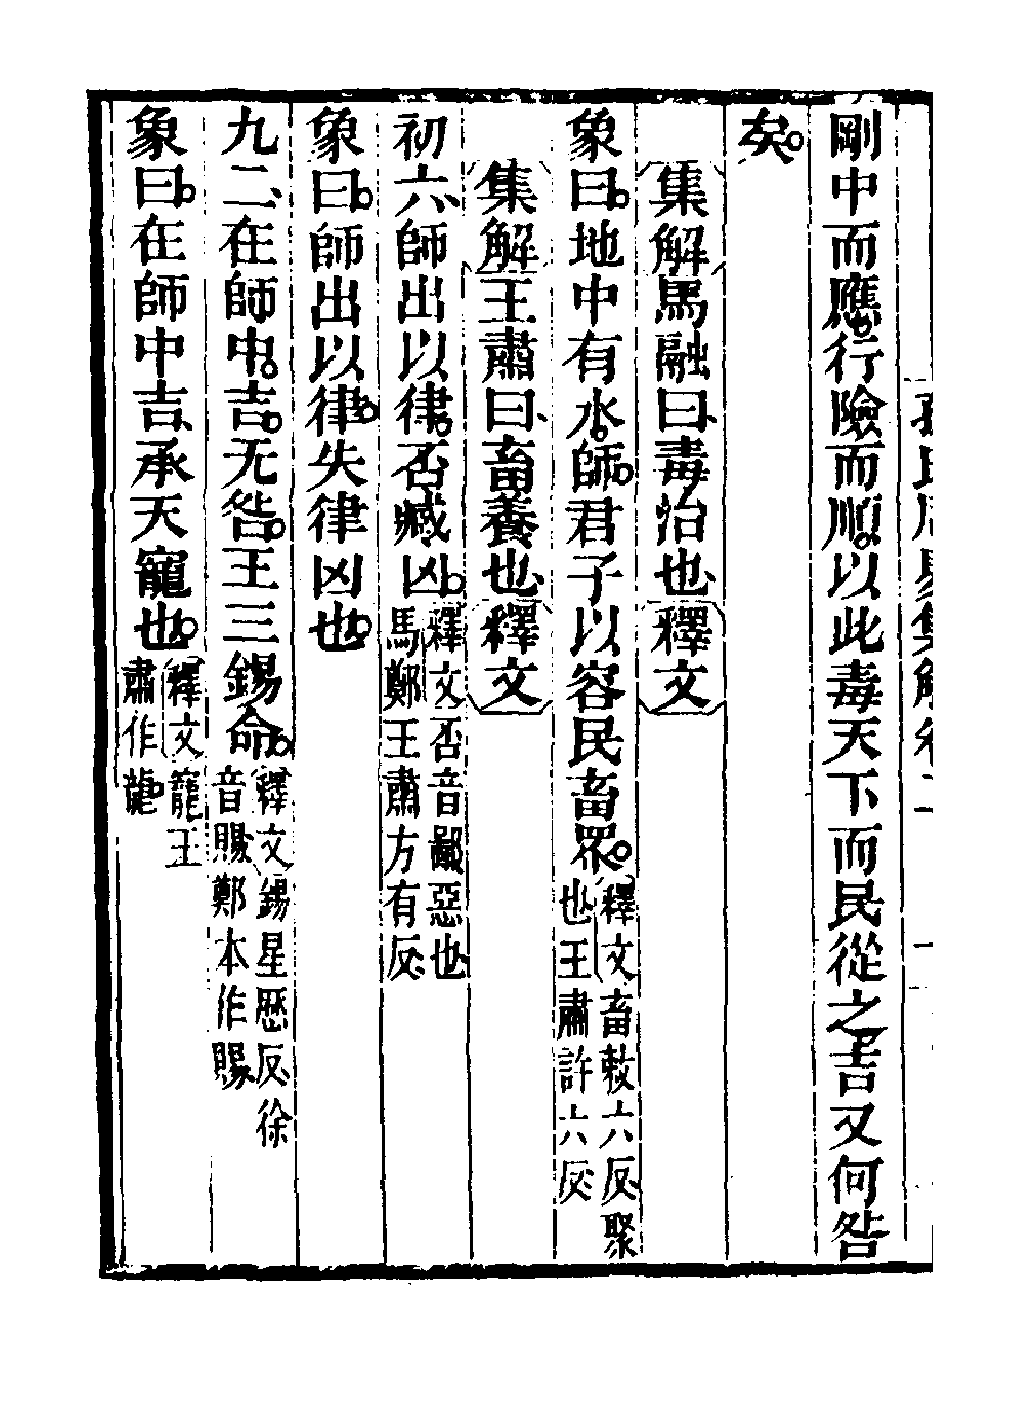 孫氏周易集解卷二
剛中而應。行險而順。以此毒天下而民從之吉又何咎
矣。
集解馬融曰、毒治也、釋文
象曰。地中有水。師。君子以容民畜眾。釋文畜敕六反、聚
也王肅許六反、
集解王肅曰、畜養也、釋文
初六、師出以律。否臧凶。釋文否音鄙惡也、
馬鄭王肅方有反、
象曰。師出以律。失律凶也。
九二、在師中。吉。无咎。王三錫命。釋文錫星歷反、徐
音賜鄭本作賜
象曰。在師中吉、承天寵也。釋文寵王
肅作龍。